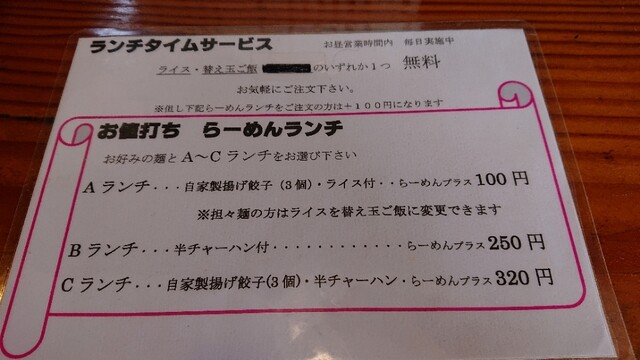 ランチタイムサービス　お昼営業時間内　毎日実施中
ライス・替え玉ご飯 のいずれか1つ 無料
お気軽にご注文下さい。
※但し下記らーめんランチをご注文の方は＋100円になります
お値打ち　らーめんランチ
お好みの麺とA～Cランチをお選び下さい
Aランチ...自家製揚げ餃子（3個）・ライス付・・らーめんプラス100円
※担々麺の方はライスを替え玉ご飯に変更できます
Bランチ...半チャーハン付・・・・・・・・・・・・らーめんプラス250円
Cランチ...自家製揚げ餃子(3個)・半チャーハン・らーめんプラス320円